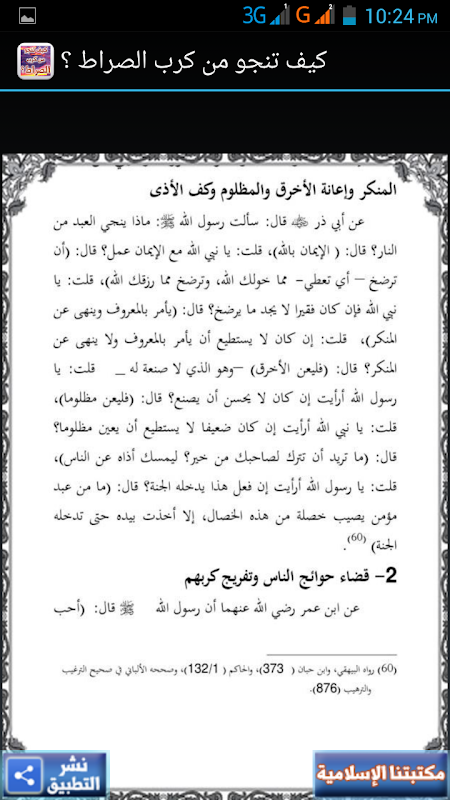 3G G 10:24 PM
كيف تنجو من كرب الصراط ؟
المنكر وإعانة الأخرق والمظلوم وكف الأذى
عن أبي ذر ﷺ قال: سألت رسول الله ﷺ: ماذا ينجي العبد من
النار؟ قال: ( الإيمان بالله)، قلت: يا نبي الله مع الإيمان عمل؟ قال: (أن
ترضخ – أي تعطي- مما خولك الله، وترضخ مما رزقك الله)، قلت: يا
نبي الله فإن كان فقيرا لا يجد ما يرضخ؟ قال: (يأمر بالمعروف وينهى عن
المنكر)، قلت: إن كان لا يستطيع أن يأمر بالمعروف ولا ينهى عن
المنكر؟ قال: (فليعن الأخرق) –وهو الذي لا صنعة له _ قلت: يا
رسول الله أرأيت إن كان لا يحسن أن يصنع؟ قال: (فليعن مظلوما)،
قلت: يا نبي الله أرأيت إن كان ضعيفا لا يستطيع أن يعين مظلوما؟
قال: (ما تريد أن تترك لصاحبك من خير؟ ليمسك أذاه عن الناس)،
قلت: يا رسول الله أرأيت إن فعل هذا يدخله الجنة؟ قال: (ما من عبد
مؤمن يصيب خصلة من هذه الخصال، إلا أخذت بيده حتى تدخله
الجنة) (60).
2- قضاء حوائج الناس وتفريج كربهم
عن ابن عمر رضي الله عنهما أن رسول الله ﷺ قال: (أحب
(60) رواه البيهقي، وابن حبان ( 373 )، والحاكم ( 132/1)، وصححه الألباني في صحيح الترغيب
والترهيب (876).
نشر
التطبيق
مكتبتنا الإسلامية